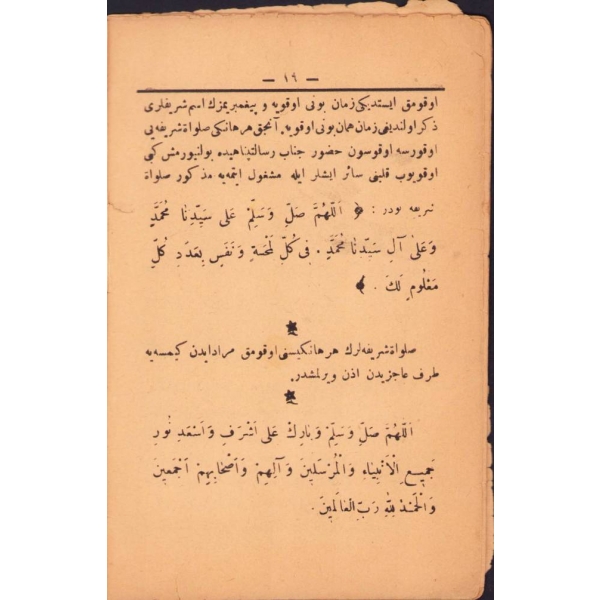 — ١٩ —
اوقومق ايستديكی زمان بونی اوقويه و پيغمبريمزك اسم شريفلری
ذكر اولنديغی زمان همان بونی اوقويه. آنجق هر هانكی صلواة شريفه‌يی
اوقورسه اوقوسون حضور جناب رسالتپناهيده بولنيورمش كبی
اوقويوب قلبنی سائر ايشلر ايله مشغول ايتمه‌يه مذكور صلواة
شريفه بودر : ﴿ اَللّٰهُمَّ صَلِّ وَسَلِّمْ عَلٰى سَيِّدِنَا مُحَمَّدٍ
وَعَلٰى آلِ سَيِّدِنَا مُحَمَّدٍ . فِى كُلِّ لَمْحَةٍ وَنَفَسٍ بِعَدَدِ كُلِّ
مَعْلُومٍ لَكَ . ﴾
صلواة شريفه‌لرك هر هانكيسنی اوقومق مراد ايدن كيمسه‌يه
طرف عاجزيدن اذن ويرلمشدر.
اَللّٰهُمَّ صَلِّ وَسَلِّمْ وَبَارِكْ عَلٰى اَشْرَفِ وَاَسْعَدِ نُورِ
جَمِيعِ الْاَنْبِيَاءِ وَالْمُرْسَلِينَ وَآلِهِمْ وَاَصْحَابِهِمْ اَجْمَعِينَ
وَالْحَمْدُ لِلّٰهِ رَبِّ الْعَالَمِينَ .